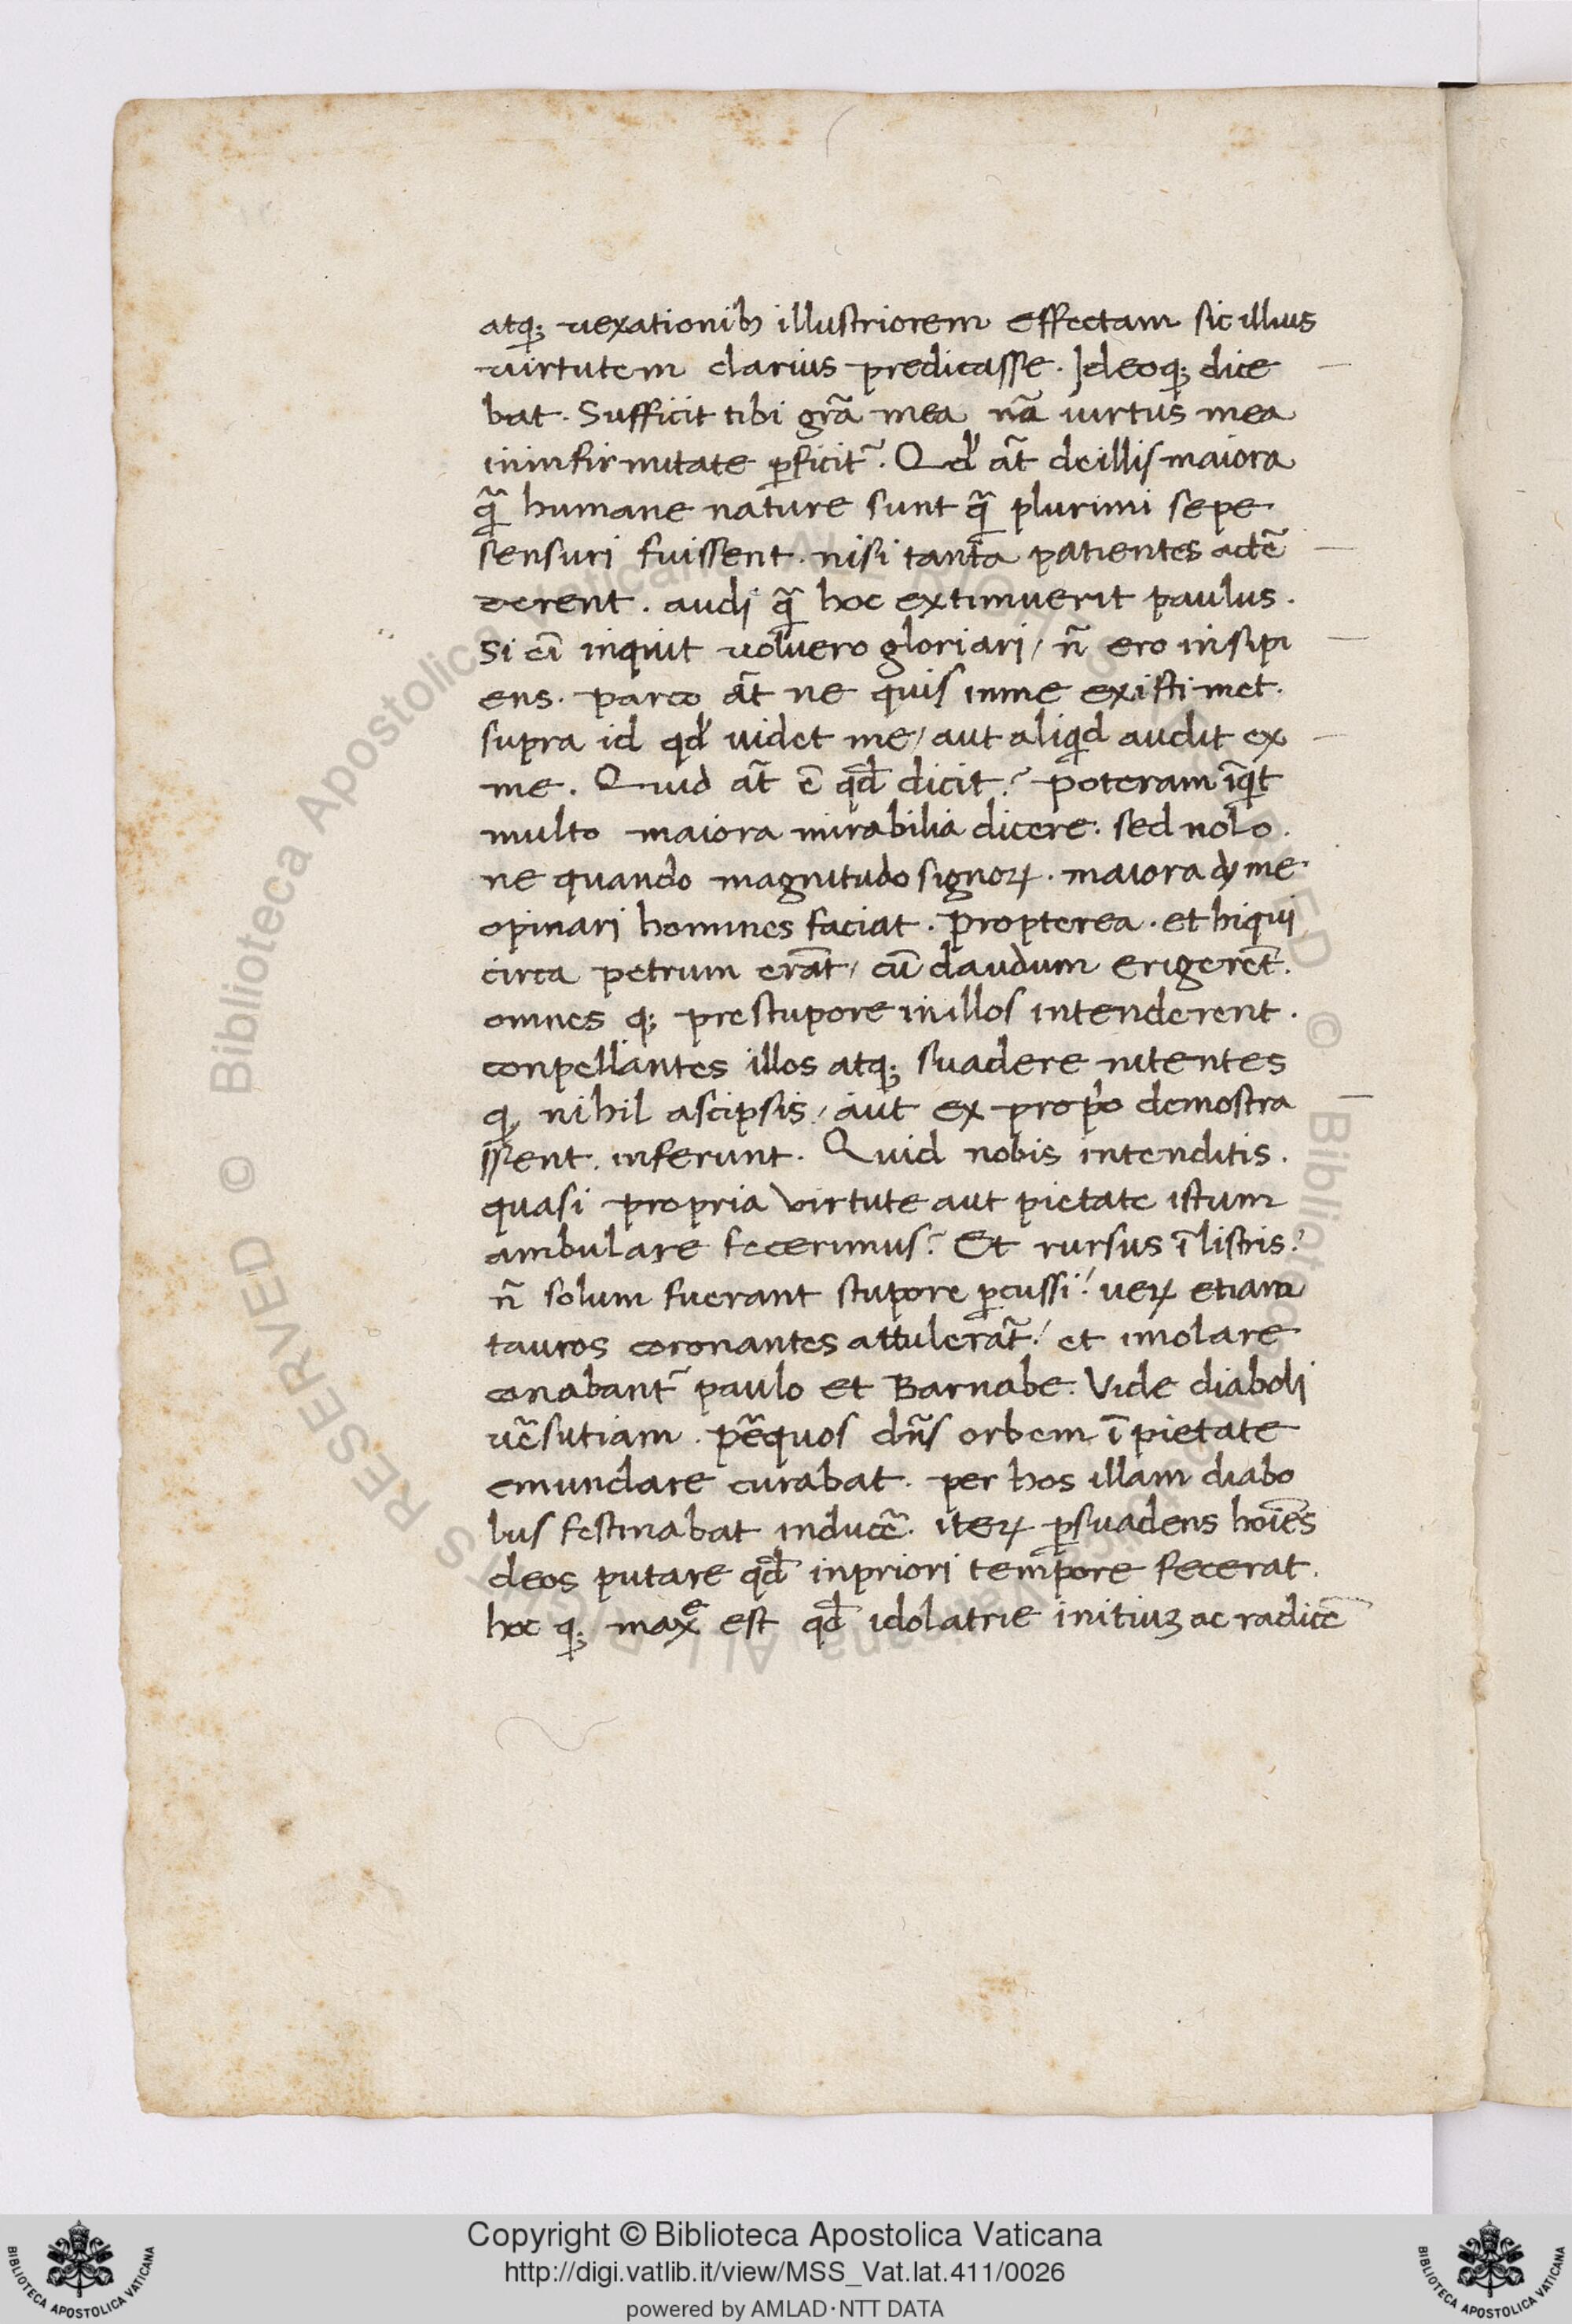 atq; vexationibȝ illustriorem effectam sic illius
virtutem clarius predicasse. Ideoq; dice
bat. Sufficit tibi grã mea nã virtus mea
in infirmitate ꝑficit̃. Qd' aũt de illis maiora
q̃ humane nature sunt q̃ plurimi sepe
sensuri fuissent. nisi tanta patientes adẽ
rent. audi q̃ hoc extimuerit paulus.
Si cũ inquit voluero gloriari / ñ ero insipi
ens. parco aũt ne quis in me existimet.
supra id qd' videt me / aut aliqid audit ex
me. Quid aũt ẽ qđ dicit? poteram ĩqit
multo maiora mirabilia dicere. sed nolo.
ne quando magnitudo signoꝝ. maiora dȳ me
opinari homines faciat. propterea. et hi qui
circa petrum erãt / cũ claudum erigerẽt.
omnes q; pre stupore in illos intenderent.
conpellantes illos atq; suadere nitentes
q, nihil a seipsis / aut ex propo demostra
ssent. inferunt. Quid nobis intenditis.
quasi propria virtute aut pietate istum
ambulare fecerimus? Et rursus ĩ listris!
ñ solum fuerant stupore ꝑcussi! ueꝝ etiam
tauros coronantes attulerãt! et imolare
conabant̃ paulo et Barnabe. Vide diaboli
ṽsutiam. pẽ quos dñs orbem ĩpietate
emundare curabat. per hos illam diabo
lus festinabat inducẽ. iteꝝ ꝑsuadens hoĩes
deos putare qđ in priori tempore fecerat.
hoc q; maxe est qđ idolatrie initiuȝ ac radicẽ
Copyright © Biblioteca Apostolica Vaticana
http://digi.vatlib.it/view/MSS_Vat.lat.411/0026
powered by AMLAD·NTT DATA
BIBLIOTECA APOSTOLICA VATICANA
BIBLIOTECA APOSTOLICA VATICANA
© Biblioteca Apostolica Vaticana ALL RIGHTS RESERVED © Biblioteca Apostolica Vaticana ALL RIGHTS RESERVED